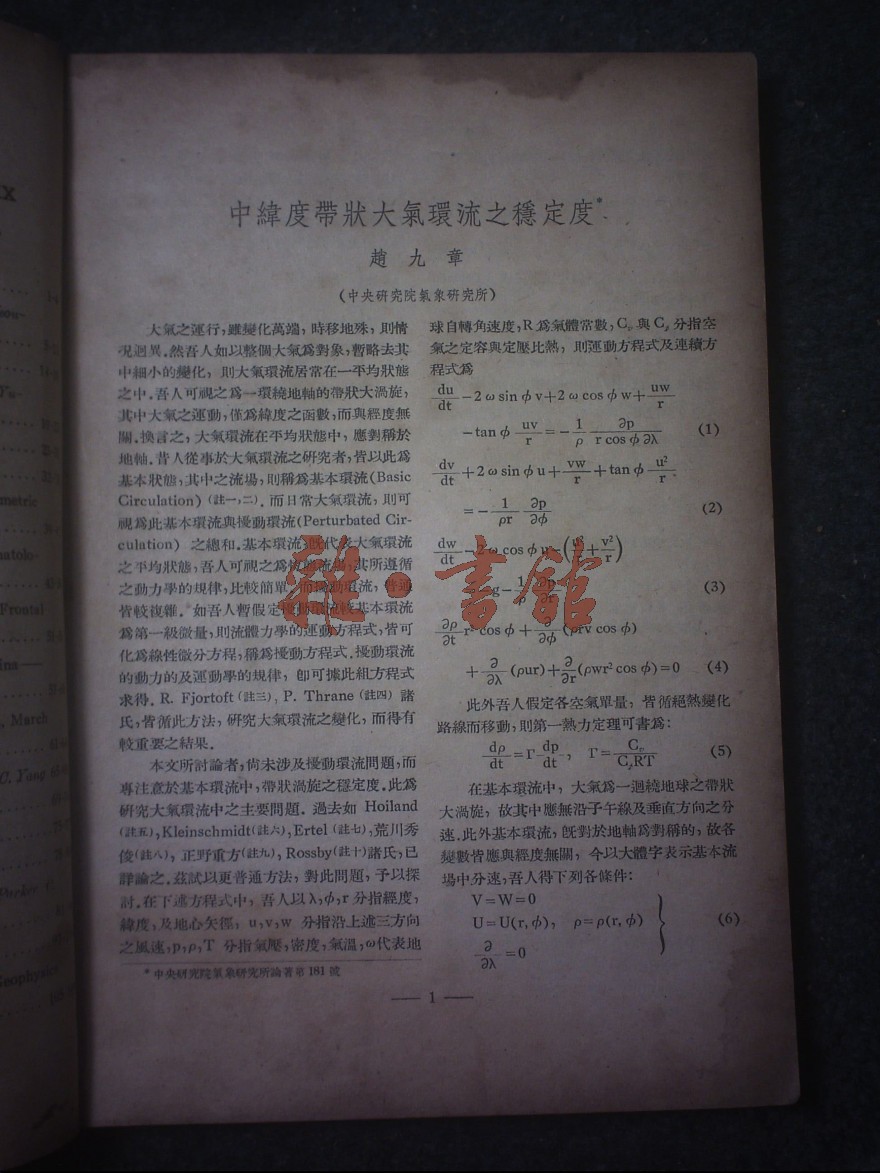 中緯度帶狀大氣環流之穩定度*
趙 九 章
(中央硏究院氣象硏究所)
大氣之運行,雖變化萬端,時移地殊,則情
况迥異.然吾人如以整個大氣爲對象,暫略去其
中細小的變化,則大氣環流居常在一平均狀態
之中.吾人可視之爲一環繞地軸的帶狀大渦旋,
其中大氣之運動,僅爲緯度之函數,而與經度無
關.換言之,大氣環流在平均狀態中,應對稱於
地軸.昔人從事於大氣環流之硏究者,皆以此爲
基本狀態,其中之流場,則稱爲基本環流(Basic
Circulation) (註一,二).而日常大氣環流,則可
視爲此基本環流與擾動環流(Perturbated Cir-
culation) 之總和.基本環流 代 大氣環流
之平均狀態,吾人可視之爲 其所遵循
之動力學的規律,比較簡單 而擾動環流,普通
皆較複雜.如吾人暫假定擾動環流較基本環流
爲第一級微量,則流體力學的運動方程式,皆可
化爲線性微分方程,稱爲擾動方程式.擾動環流
的動力的及運動學的規律,卽可據此組方程式
求得.R. Fjortoft (註三), P. Thrane (註四) 諸
氏,皆循此方法,硏究大氣環流之變化,而得有
較重要之結果.
本文所討論者,尙未涉及擾動環流問題,而
專注意於基本環流中,帶狀渦旋之穩定度.此爲
硏究大氣環流中之主要問題.過去如 Hoiland
(註五),Kleinschmidt(註六),Ertel (註七),荒川秀
俊(註八),正野重方(註九),Rossby(註十)諸氏,已
詳論之.茲試以更普通方法,對此問題,予以探
討.在下述方程式中,吾人以 λ,φ,r 分指經度,
緯度,及地心矢徑,u,v,w 分指沿上述三方向
之風速,p,ρ,T 分指氣壓,密度,氣溫,ω代表地
* 中央硏究院氣象硏究所論著第 181 號
球自轉角速度,R 爲氣體常數,Cᵥ 與 Cₚ 分指空
氣之定容與定壓比熱,則運動方程式及連續方
程式爲
du/dt −2 ω sin φ v+2 ω cos φ w+ uw/r
−tan φ uv/r = − 1/ρ ∂p/(r cos φ ∂λ) (1)
dv/dt +2 ω sin φ u+ vw/r + tan φ u²/r
= − 1/(ρr) ∂p/∂φ (2)
dw/dt −2 ω cos φ u−(u²/r + v²/r)
g− 1/ρ ∂p/∂r (3)
∂ρ/∂t r² cos φ + ∂/∂φ (ρrv cos φ)
+ ∂/∂λ (ρur)+ ∂/∂r (ρwr² cos φ)=0 (4)
此外吾人假定各空氣單量,皆循絕熱變化
路線而移動,則第一熱力定理可書爲:
dρ/dt =Γ dp/dt , Γ= Cᵥ/(CₚRT) (5)
在基本環流中,大氣爲一迴繞地球之帶狀
大渦旋,故其中應無沿子午線及垂直方向之分
速.此外基本環流,旣對於地軸爲對稱的,故各
變數皆應與經度無關,今以大體字表示基本流
場中分速,吾人得下列各條件:
V=W=0
U=U(r, φ), ρ=ρ(r, φ) (6)
∂/∂λ =0
— 1 —
雜·書館